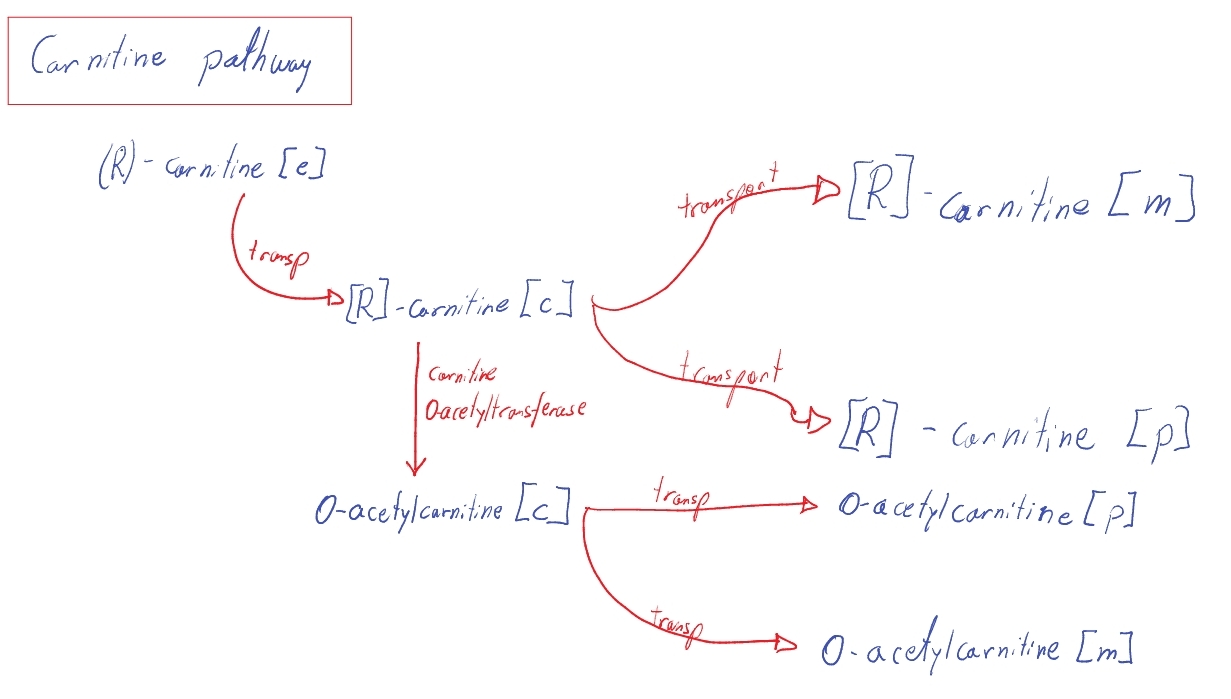 Carnitine pathway
(R)-carnitine [e]
transp
[R]-carnitine [c]
transport
[R]-carnitine [m]
transport
[R]-carnitine [p]
carnitine
O-acetyltransferase
O-acetylcarnitine [c]
transp
O-acetylcarnitine [p]
transp
O-acetylcarnitine [m]